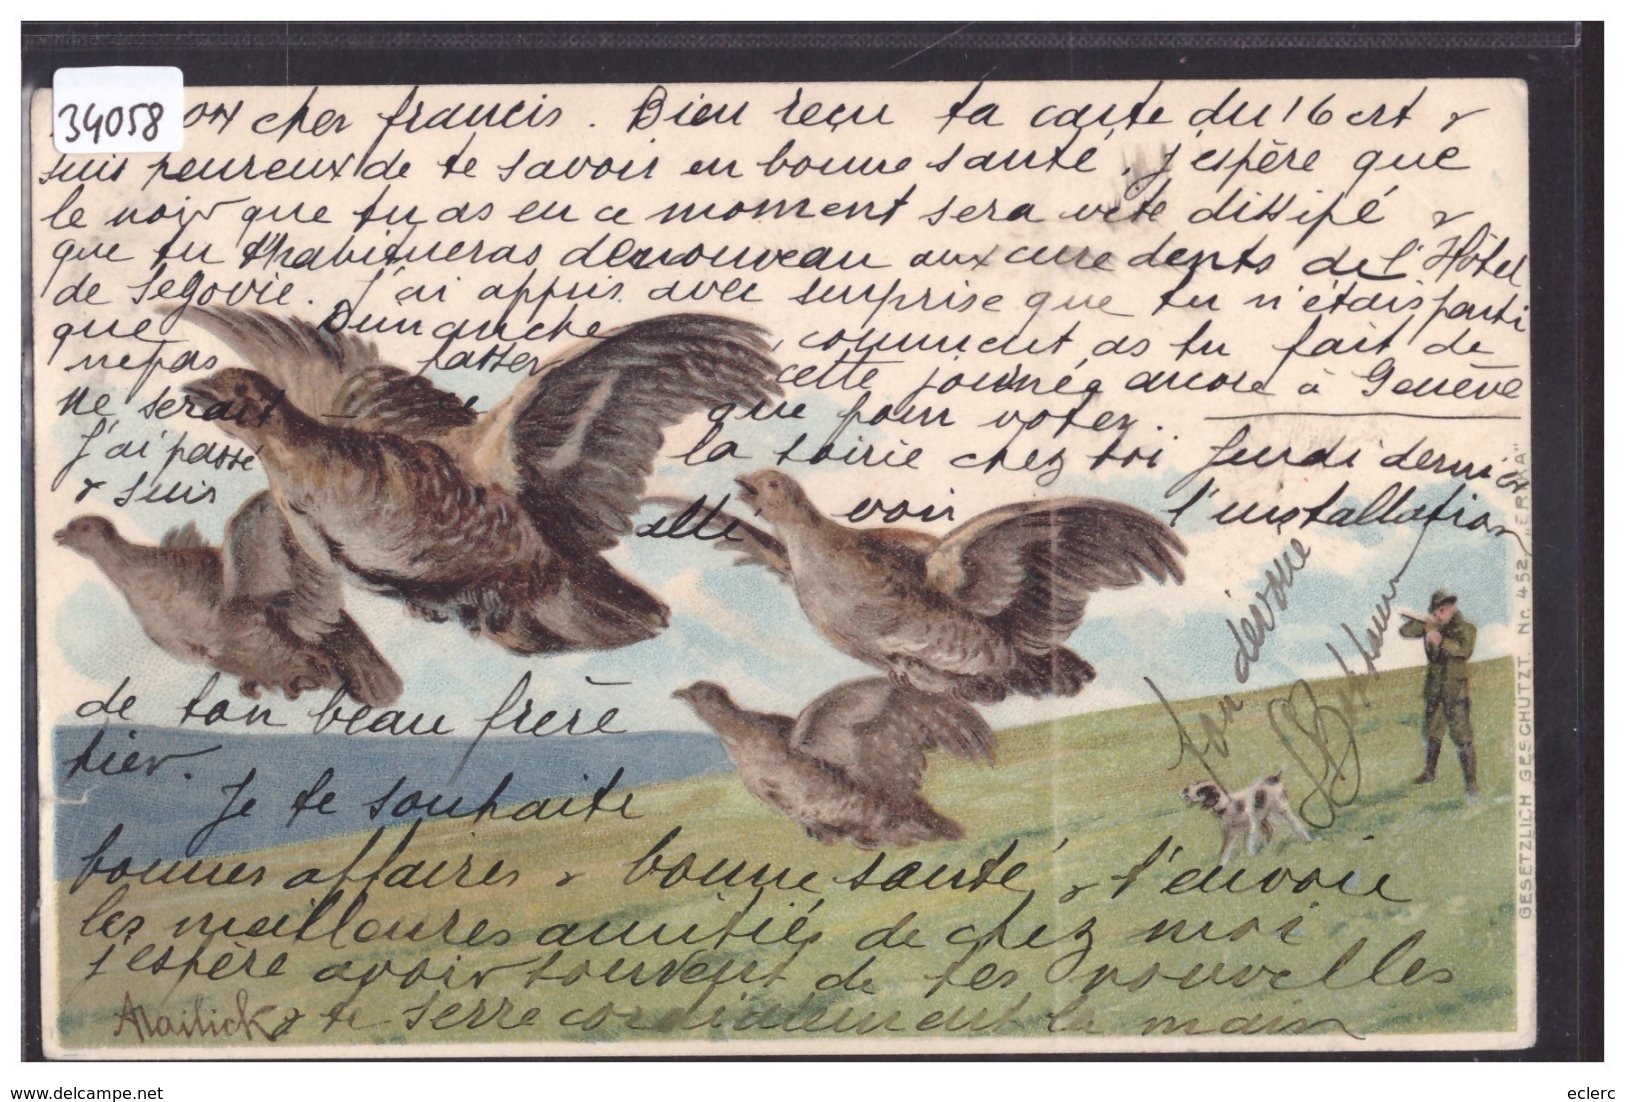 34058
mon cher francis. Bien reçu ta carte du 16 crt &
suis heureux de te savoir en bonne santé, j'espère que
le noir que tu as en ce moment sera vite dissipé &
que tu t'habitueras denouveau aux cure dents de l'Hôtel
de Segovie. J'ai appris avec surprise que tu n'étais parti
que Dimanche, comment as tu fait de
ne pas passer cette journée encore à Genève
ne serait-ce que pour voter.
J'ai passé la soirie chez toi Jeudi dernier
& suis allé voir l'installation
de ton beau frère
tier.
Je te souhaite
bonnes affaires & bonne santé, & t'envoie
les meilleures amitiés de chez moi
j'espère avoir souvent de tes nouvelles
& te serre cordialement la main
Ton dévoué
AMailick
GESETZLICH GESCHÜTZT. Nr. 452, "ERIKA"
www.delcampe.net
eclerc